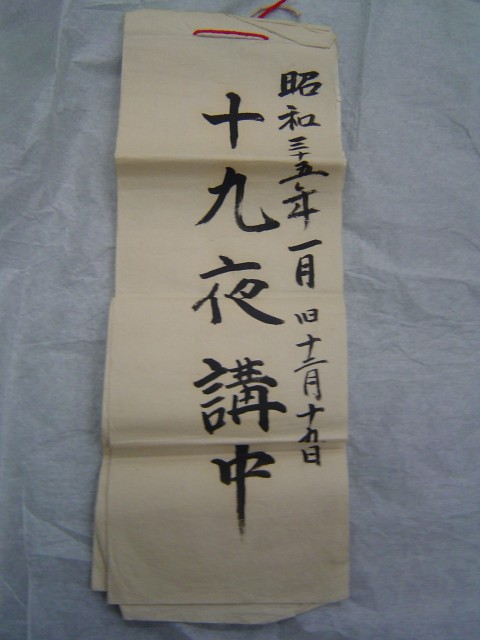 昭和三十五年一月 旧十二月十九日
十九夜講中